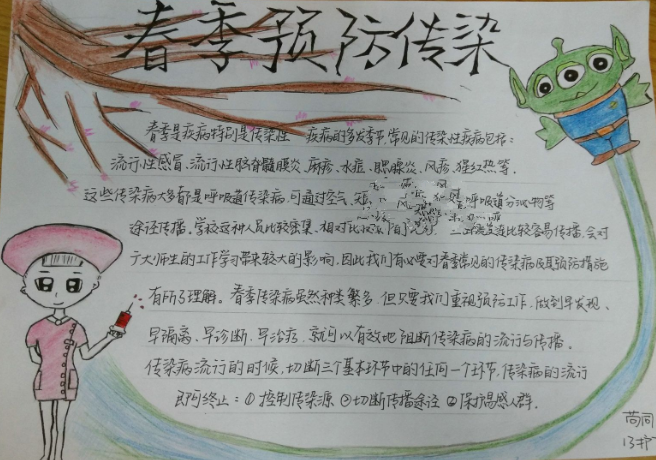 春季预防传染
春季是疾病特别是传染性 疾病的多发季节,常见的传染性疾病包括:
流行性感冒、流行性脑脊髓膜炎、麻疹、水痘、腮腺炎、风疹、猩红热等,
这些传染病大多都是呼吸道传染病,可通过空气、短 呼吸道分泌物等
途径传播,学校这种人员比较密集、相对比较 比较容易传播,会对
广大师生的工作学习带来较大的影响,因此我们有必要对春季常见的传染病及其预防措施
有所了理解。春季传染病虽然种类繁多,但只要我们重视预防工作,做到早发现、
早隔离、早诊断、早治疗,就可以有效地阻断传染病的流行与传播、
传染病流行的时候,切断三个基本环节中的任何一个环节,传染病的流行
即可终止:①控制传染源 ②切断传播途径 ③保护易感人群.
13护